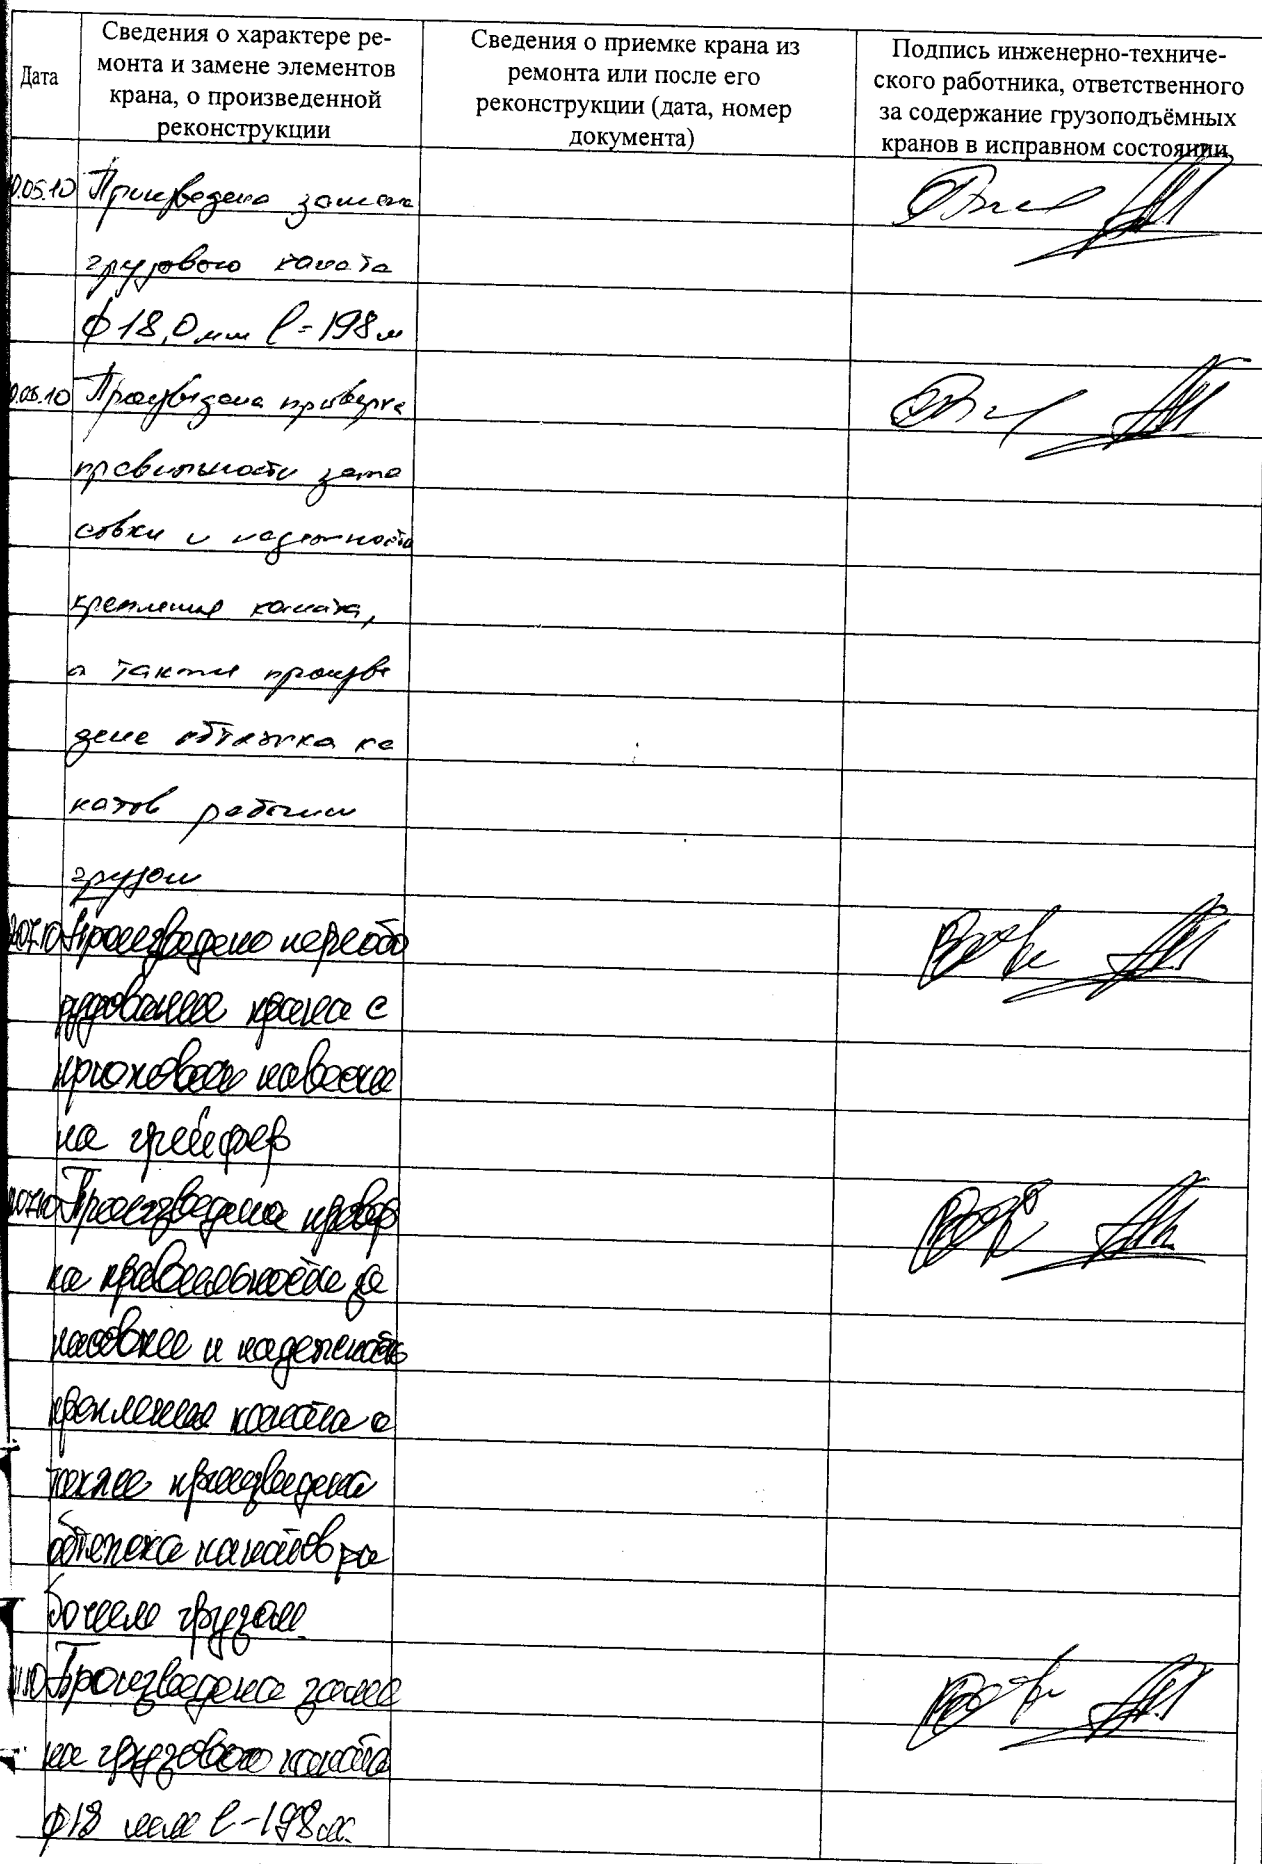 Дата
Сведения о характере ре-
монта и замене элементов
крана, о произведенной
реконструкции
Сведения о приемке крана из
ремонта или после его
реконструкции (дата, номер
документа)
Подпись инженерно-техниче-
ского работника, ответственного
за содержание грузоподъёмных
кранов в исправном состоянии
0.05.10 Произведена замена
грузового каната
ф 18,0 мм l=198 м
Произведена проверка
правильности запа
совки и надежность
крепления каната,
а также произве
дена обтяжка ка
натов рабочим
грузом
Произведено переобо
рудование крана с
крюковой навески
на грейфер
Произведена провер
ка правильности за
пасовки и надежность
крепления каната а
также произведена
обтяжка канатов ра
бочим грузом.
Произведена заме
на грузового каната
ф18 мм l-198м.